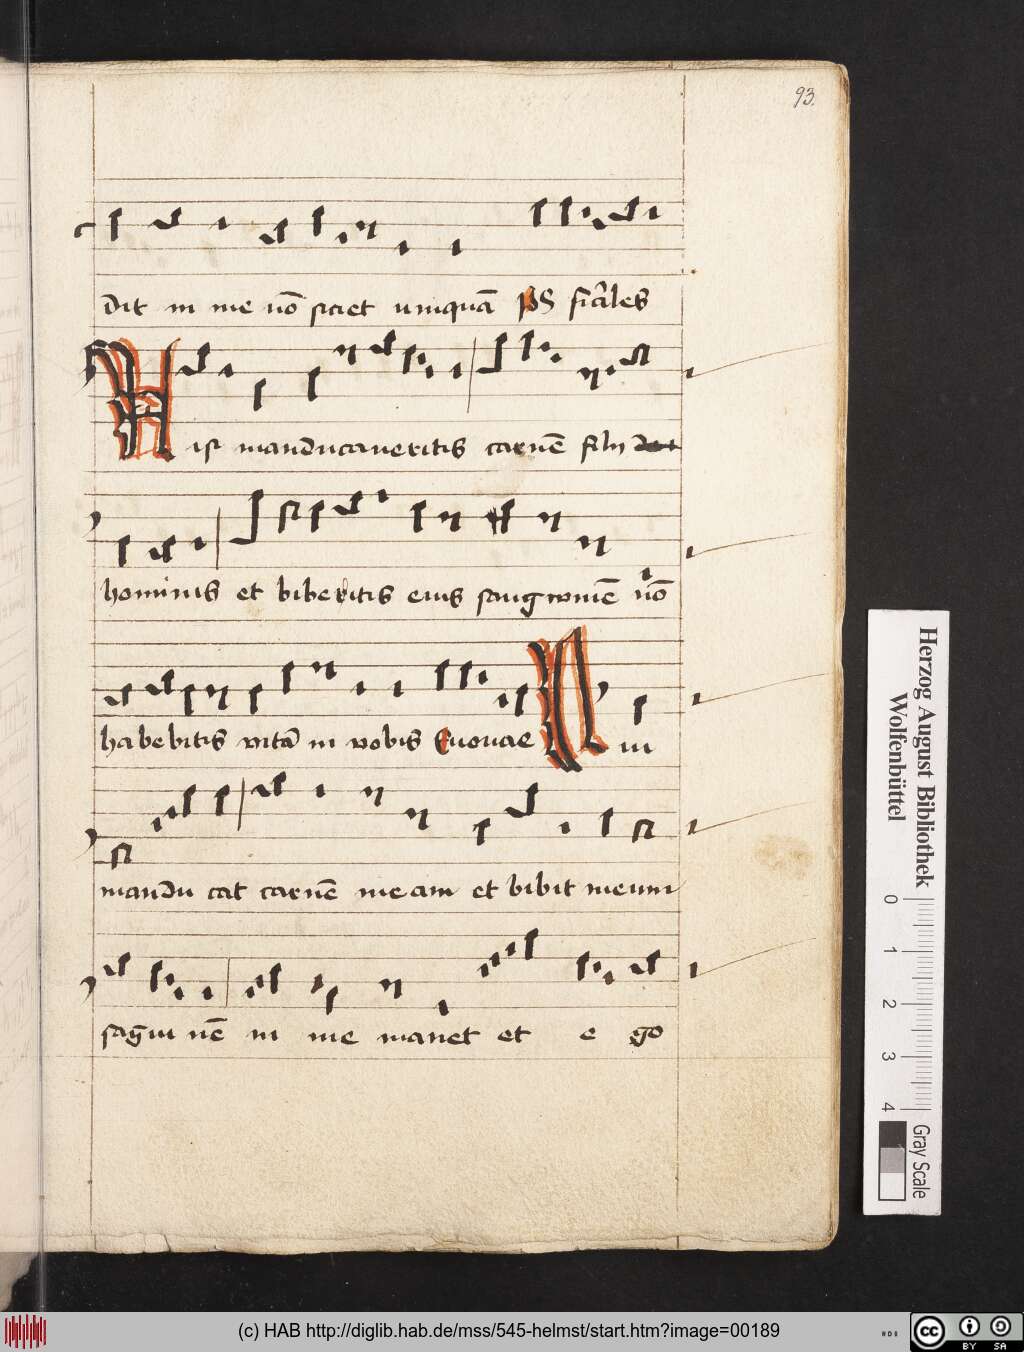 93.
dit in me nō sitiet umquā PS fīales
Nisi manducaveritis carnē filij
hominis et biberitis eius sangwinē nō
habebitis vitā in vobis Evovae Qui
mandu cat carnē meam et bibit meum
sāgui nē in me manet et e go
Herzog August Bibliothek
Wolfenbüttel
0 1 2 3 4
Gray Scale
(c) HAB http://diglib.hab.de/mss/545-helmst/start.htm?image=00189
cc BY SA